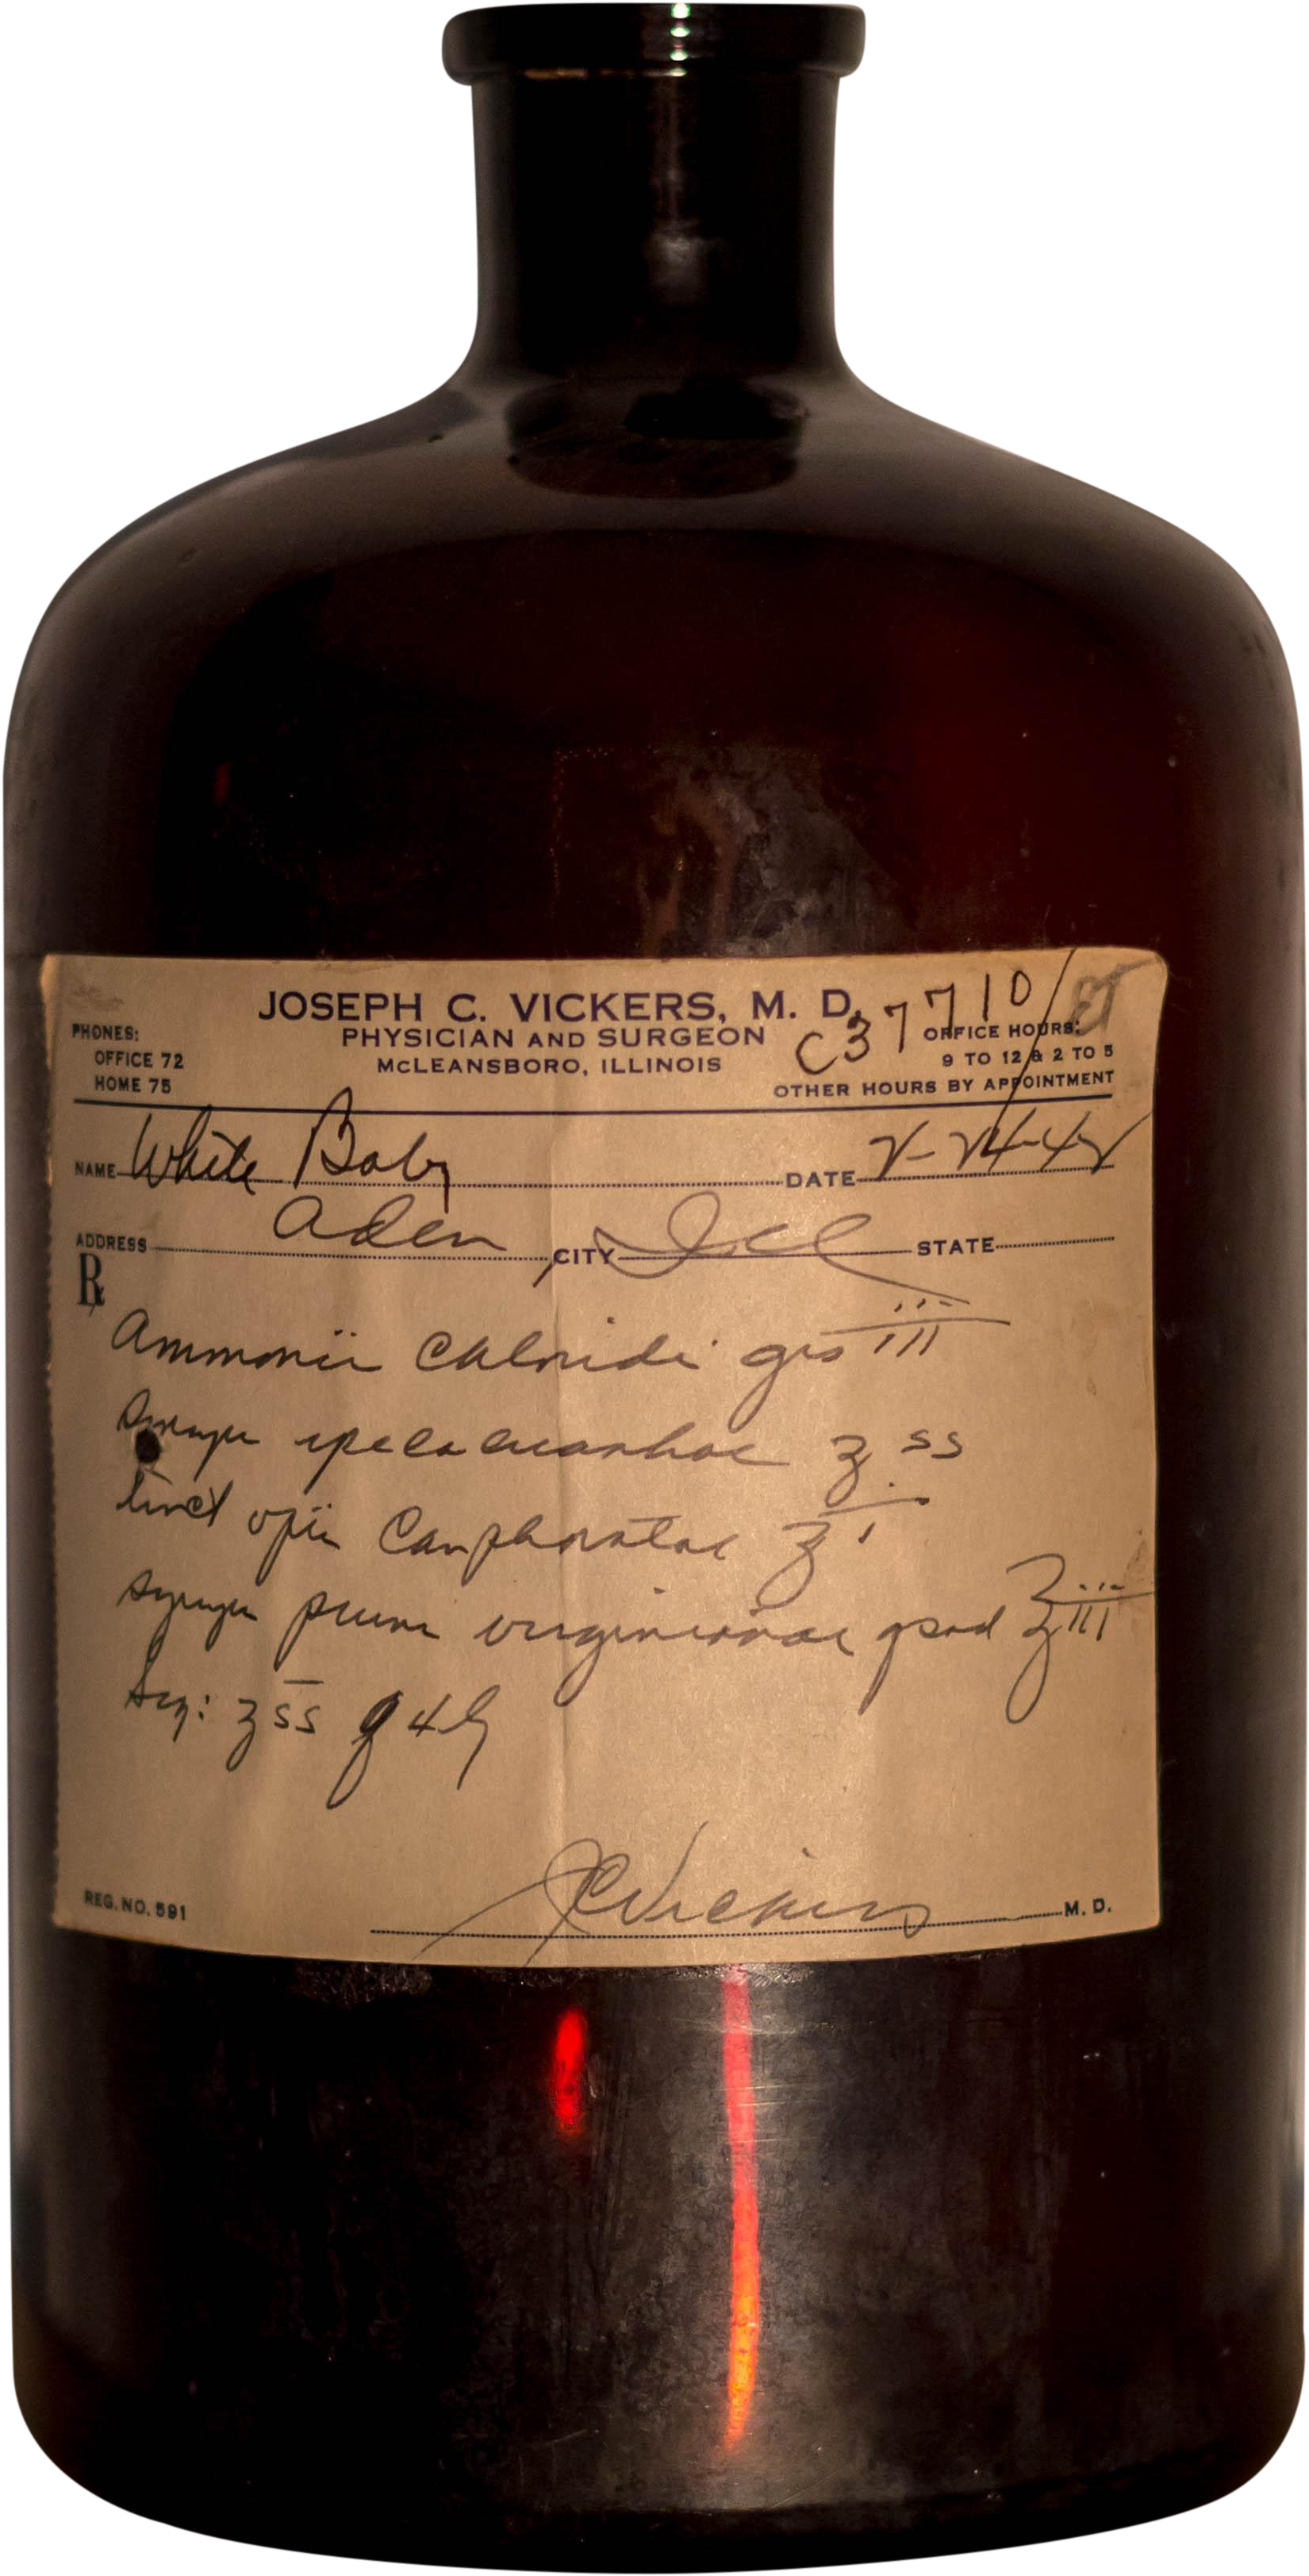 JOSEPH C. VICKERS, M. D.
PHYSICIAN AND SURGEON
McLEANSBORO, ILLINOIS
PHONES:
OFFICE 72
HOME 75
C37710
OFFICE HOURS:
9 TO 12 & 2 TO 5
OTHER HOURS BY APPOINTMENT
NAME White Baby DATE 2-24-42
ADDRESS Aden, CITY Ill STATE
℞
Ammonii Chloridi grs iii
Syrupi ipecacuanhae ʒ ss
tinct opii Camphoratae ʒ i
syrupi pruni virginianae qsad ℥iii
Sig: ʒ ss q 4 h
JCVickers M. D.
REG. NO. 591